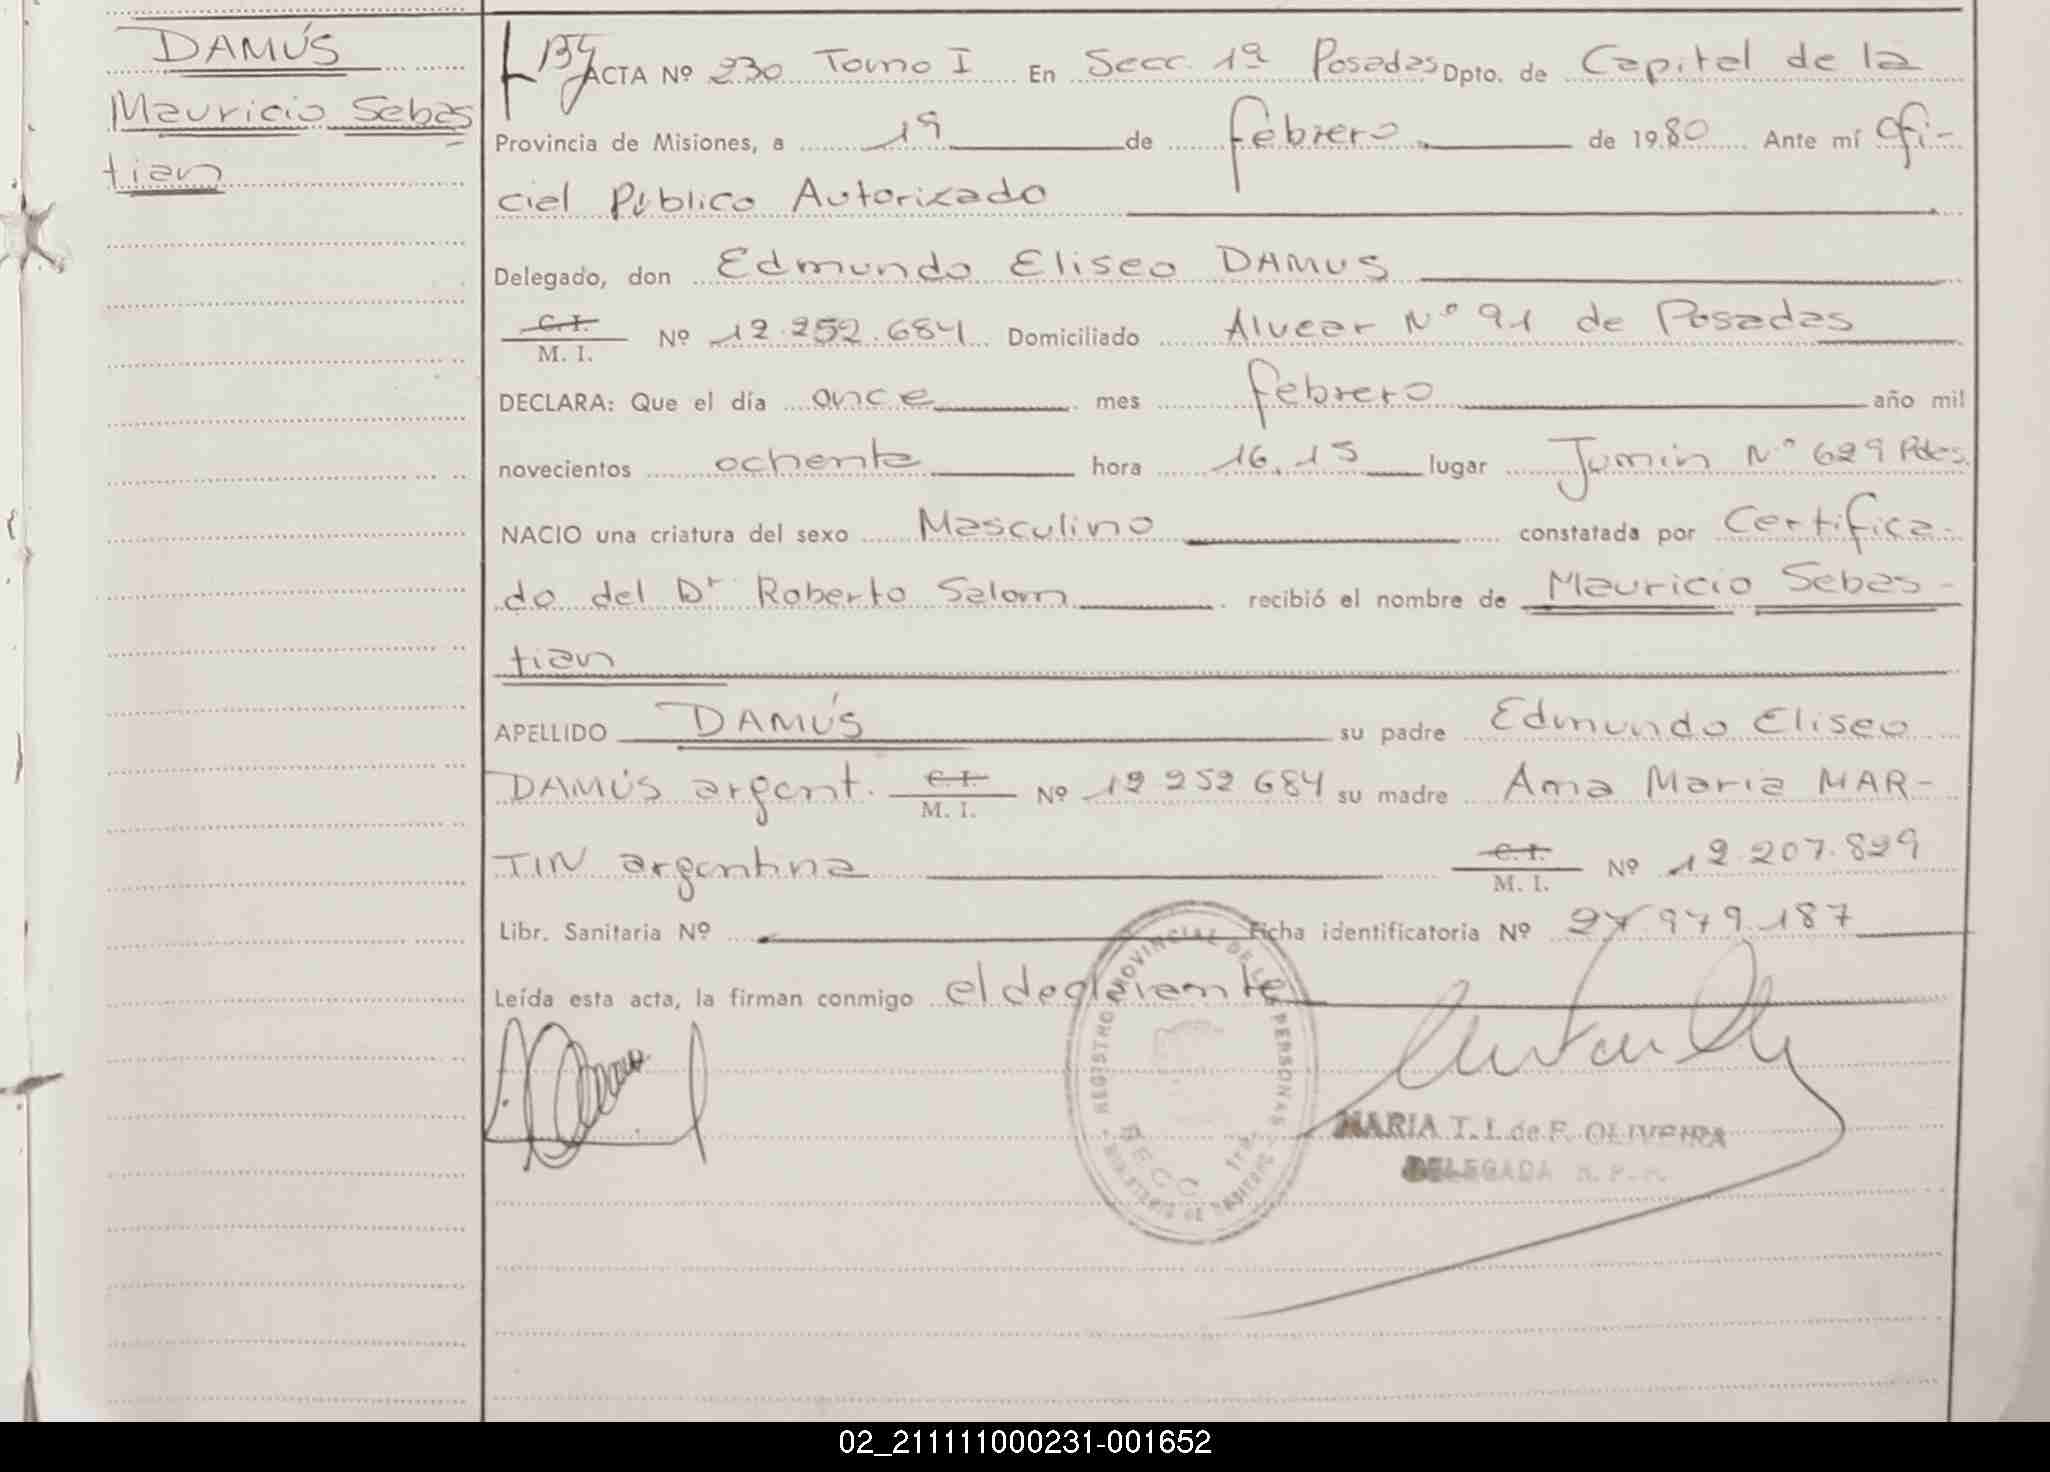 DAMÚS
Mauricio Sebas
tian
ACTA Nº 230 Tomo I En Secc. 1ª Posadas Dpto. de Capital de la
Provincia de Misiones, a 19 de febrero de 1980 Ante mí Ofi-
cial Público Autorizado
Delegado, don Edmundo Eliseo DAMUS
C. I.
M. I. Nº 12.252.684 Domiciliado Alvear Nº 91 de Posadas
DECLARA: Que el día once mes febrero año mil
novecientos ochenta hora 16.15 lugar Junin Nº 629 Pdas.
NACIO una criatura del sexo Masculino constatada por Certifica-
do del Dr Roberto Salom recibió el nombre de Mauricio Sebas-
tian
APELLIDO DAMÚS su padre Edmundo Eliseo
DAMÚS argent. C. I. M. I. Nº 12 252 684 su madre Ana Maria MAR-
TIN argentina C. I. M. I. Nº 12.207.829
Libr. Sanitaria Nº Ficha identificatoria Nº 27.979.187
Leída esta acta, la firman conmigo el declarante
REGISTRO PROVINCIAL DE LAS PERSONAS
SECC. 1ra.
MARIA T. I. de F. OLIVEIRA
DELEGADA R. P. P.
02_211111000231-001652